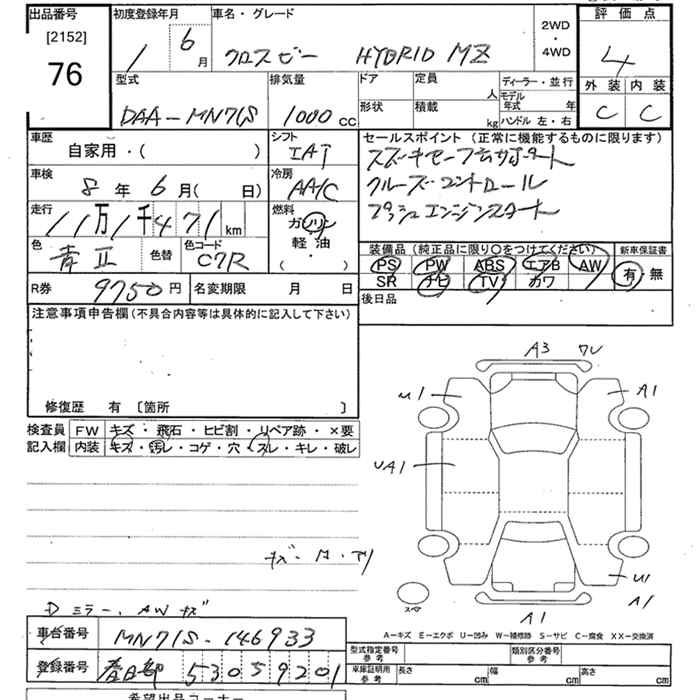 出品番号
[2152]
76
初度登録年月
1 6 月
車名・グレード
クロスビー HYBRID MZ
2WD
・
4WD
評価点
4
外装 内装
C C
型式
DAA-MN71S
排気量
1000 cc
ドア 定員
人
形状 積載
kg
ディーラー・並行
モデル年式 年
ハンドル 左・右
車歴
自家用・( )
シフト
IAT
セールスポイント(正常に機能するものに限ります)
スズキセーフティサポート
クルーズコントロール
プッシュエンジンスタート
車検
8 年 6 月( 日)
冷房
AA/C
走行
11万1千471 km
燃料
ガソリン
軽油
( ・ )
色
青 色替
色コード
C7R
装備品(純正品に限り〇をつけてください)
PS PW ABS エアB AW
SR ナビ TV カワ
新車保証書
有・無
R券
9750円
名変期限 月 日
後日品
注意事項申告欄(不具合内容等は具体的に記入して下さい)
修復歴 有 〔箇所 〕
検査員 FW キズ・飛石・ヒビ割・リペア跡・×要
記入欄 内装 キズ・汚レ・コゲ・穴・スレ・キレ・破レ
A3 ワレ
U1 A1
UA1
U1
A1
A1
スペア
Dミラー、AWキズ
A-キズ E-エクボ U-凹み W-補修跡 S-サビ C-腐食 XX-交換済
車台番号 MN71S-146933
登録番号 春日部 530 5 9201
型式指定番号 参考
類別区分番号 参考
車庫証明用 参考
長さ cm 幅 cm 高さ cm
希望出品コーナー